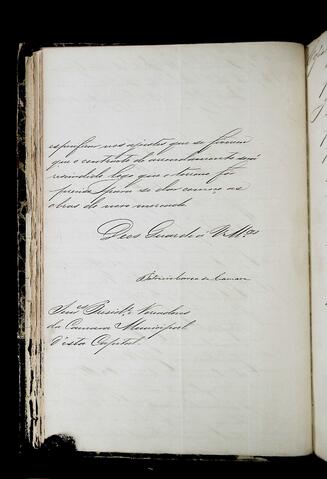 nos ajustes que se fizerem
que o contracto de arrendamento será
rescindido logo que o terreno for
preciso para se dar começo as
obras do novo mercado
Deos Guarde a V. M.ces
Senr.s Presid.te Vereadores
da Camara Municipal
d'esta Capital